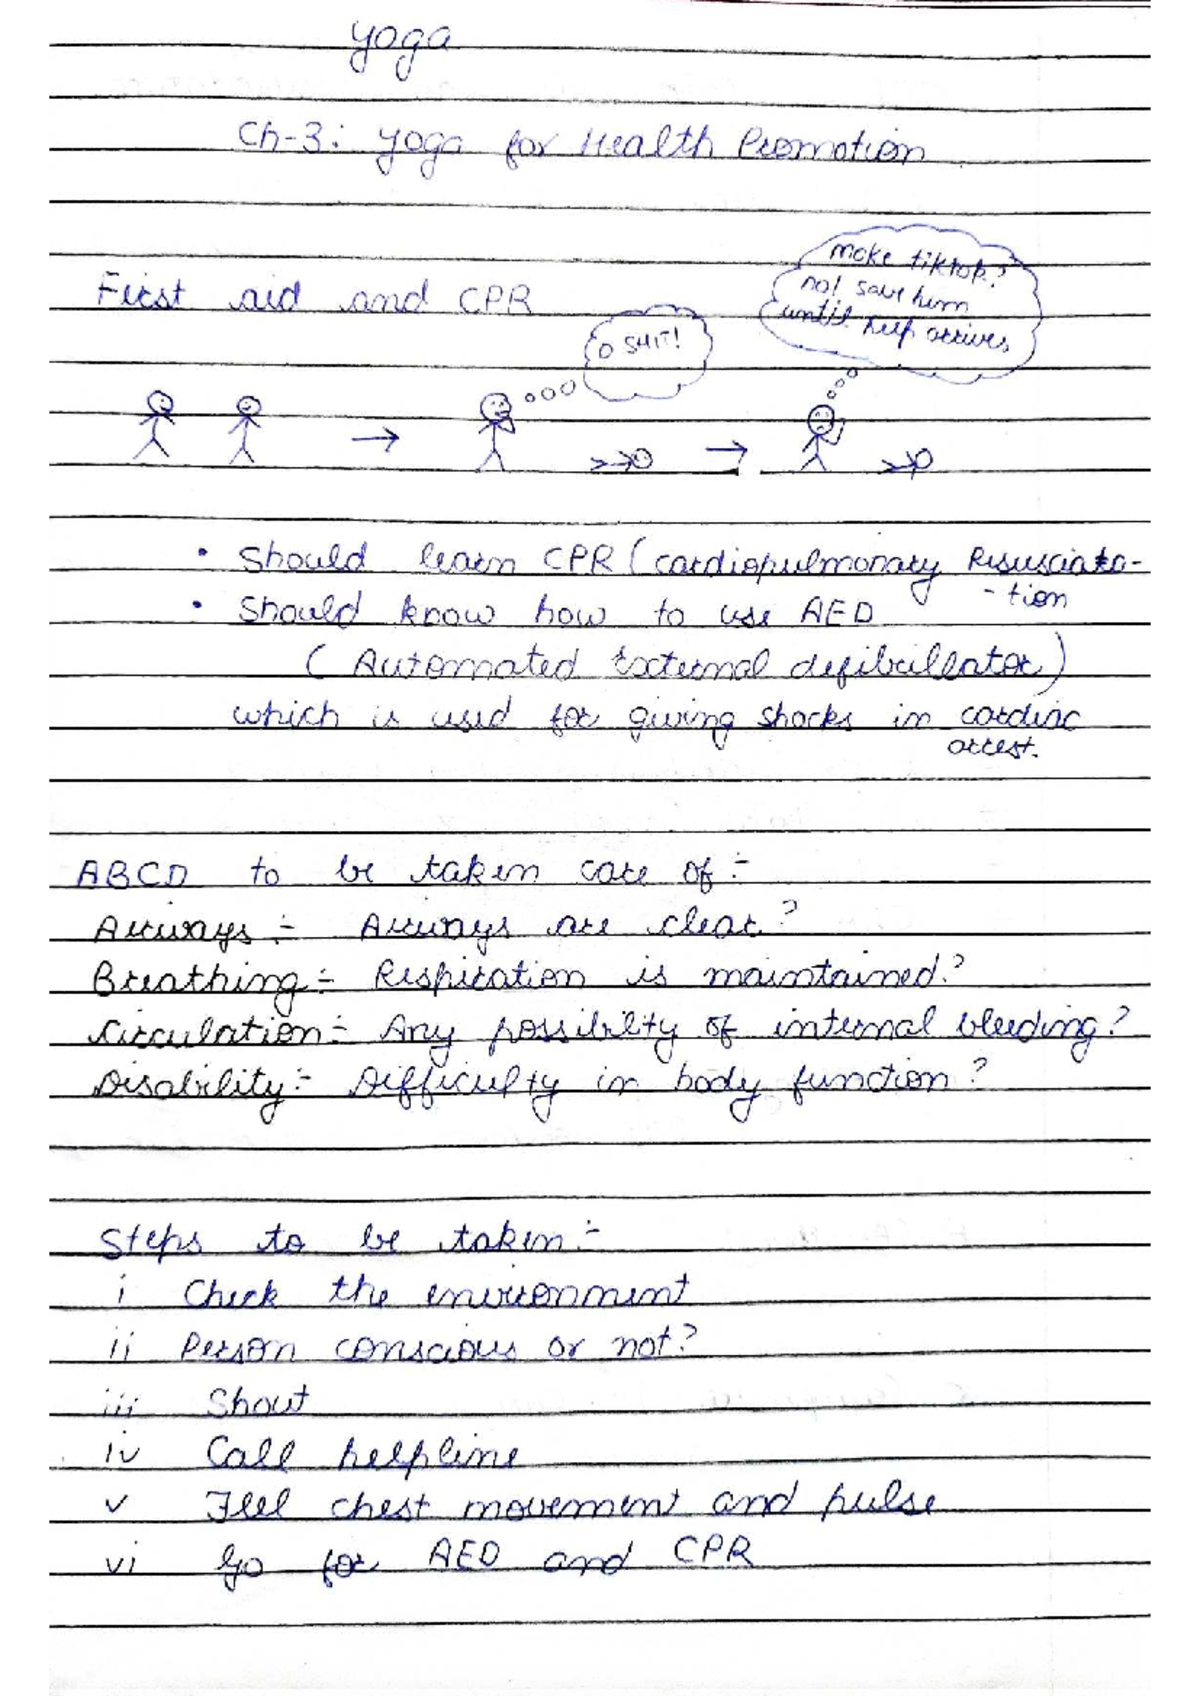 Yoga
Ch-3: Yoga for Health Promotion
First aid and CPR
O SHIT!
make tiktok?
no! save him
until help arrives
• Should learn CPR (cardiopulmonary Resusciata-
-tion
• Should know how to use AED
(Automated External defibrillator)
which is used for giving shocks in cardiac
arrest.
ABCD to be taken care of :-
Airways :- Airways are clear?
Breathing :- Respiration is maintained?
Circulation :- Any possibilty of internal bleeding?
Disability :- Difficulty in body function?
Steps to be taken :-
i Check the environment
ii Person conscious or not?
iii Shout
iv Call helpline
v Feel chest movement and pulse
vi Go for AED and CPR